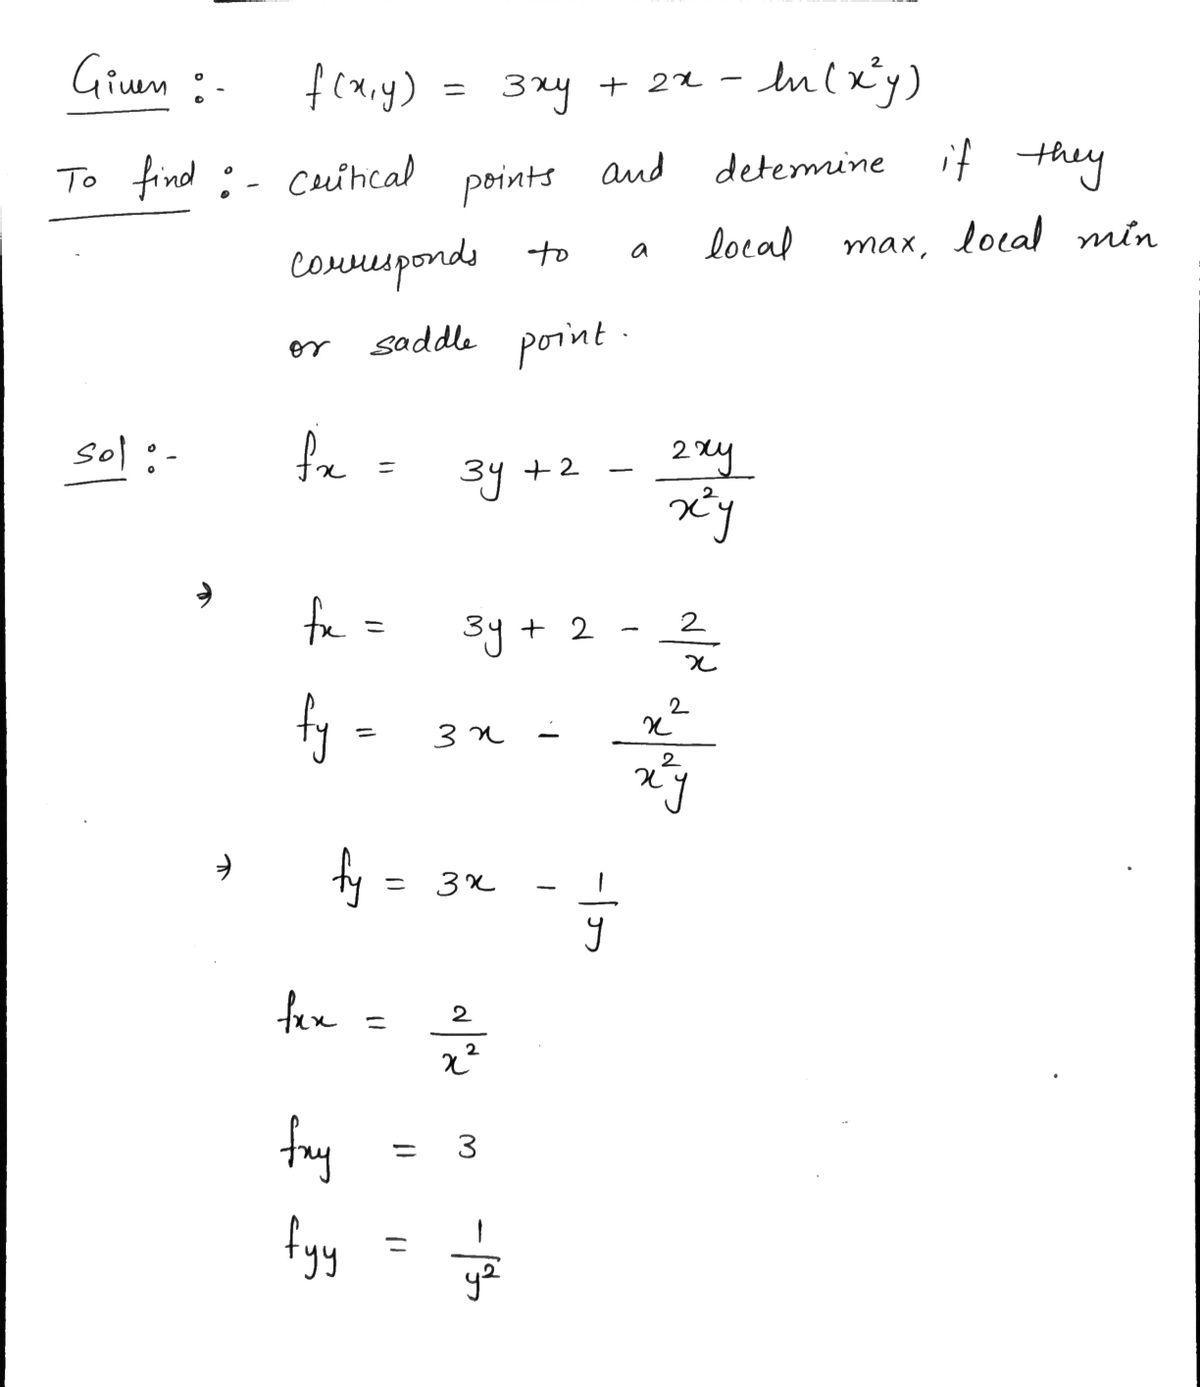 Given :- f(x,y) = 3xy + 2x - ln(x²y)
To find :- critical points and determine if they
corresponds to a local max, local min
or saddle point.
Sol :- fx = 3y + 2 - 2xy/x²y
⇒ fx = 3y + 2 - 2/x
fy = 3x - x²/x²y
⇒ fy = 3x - 1/y
fxx = 2/x²
fxy = 3
fyy = 1/y²